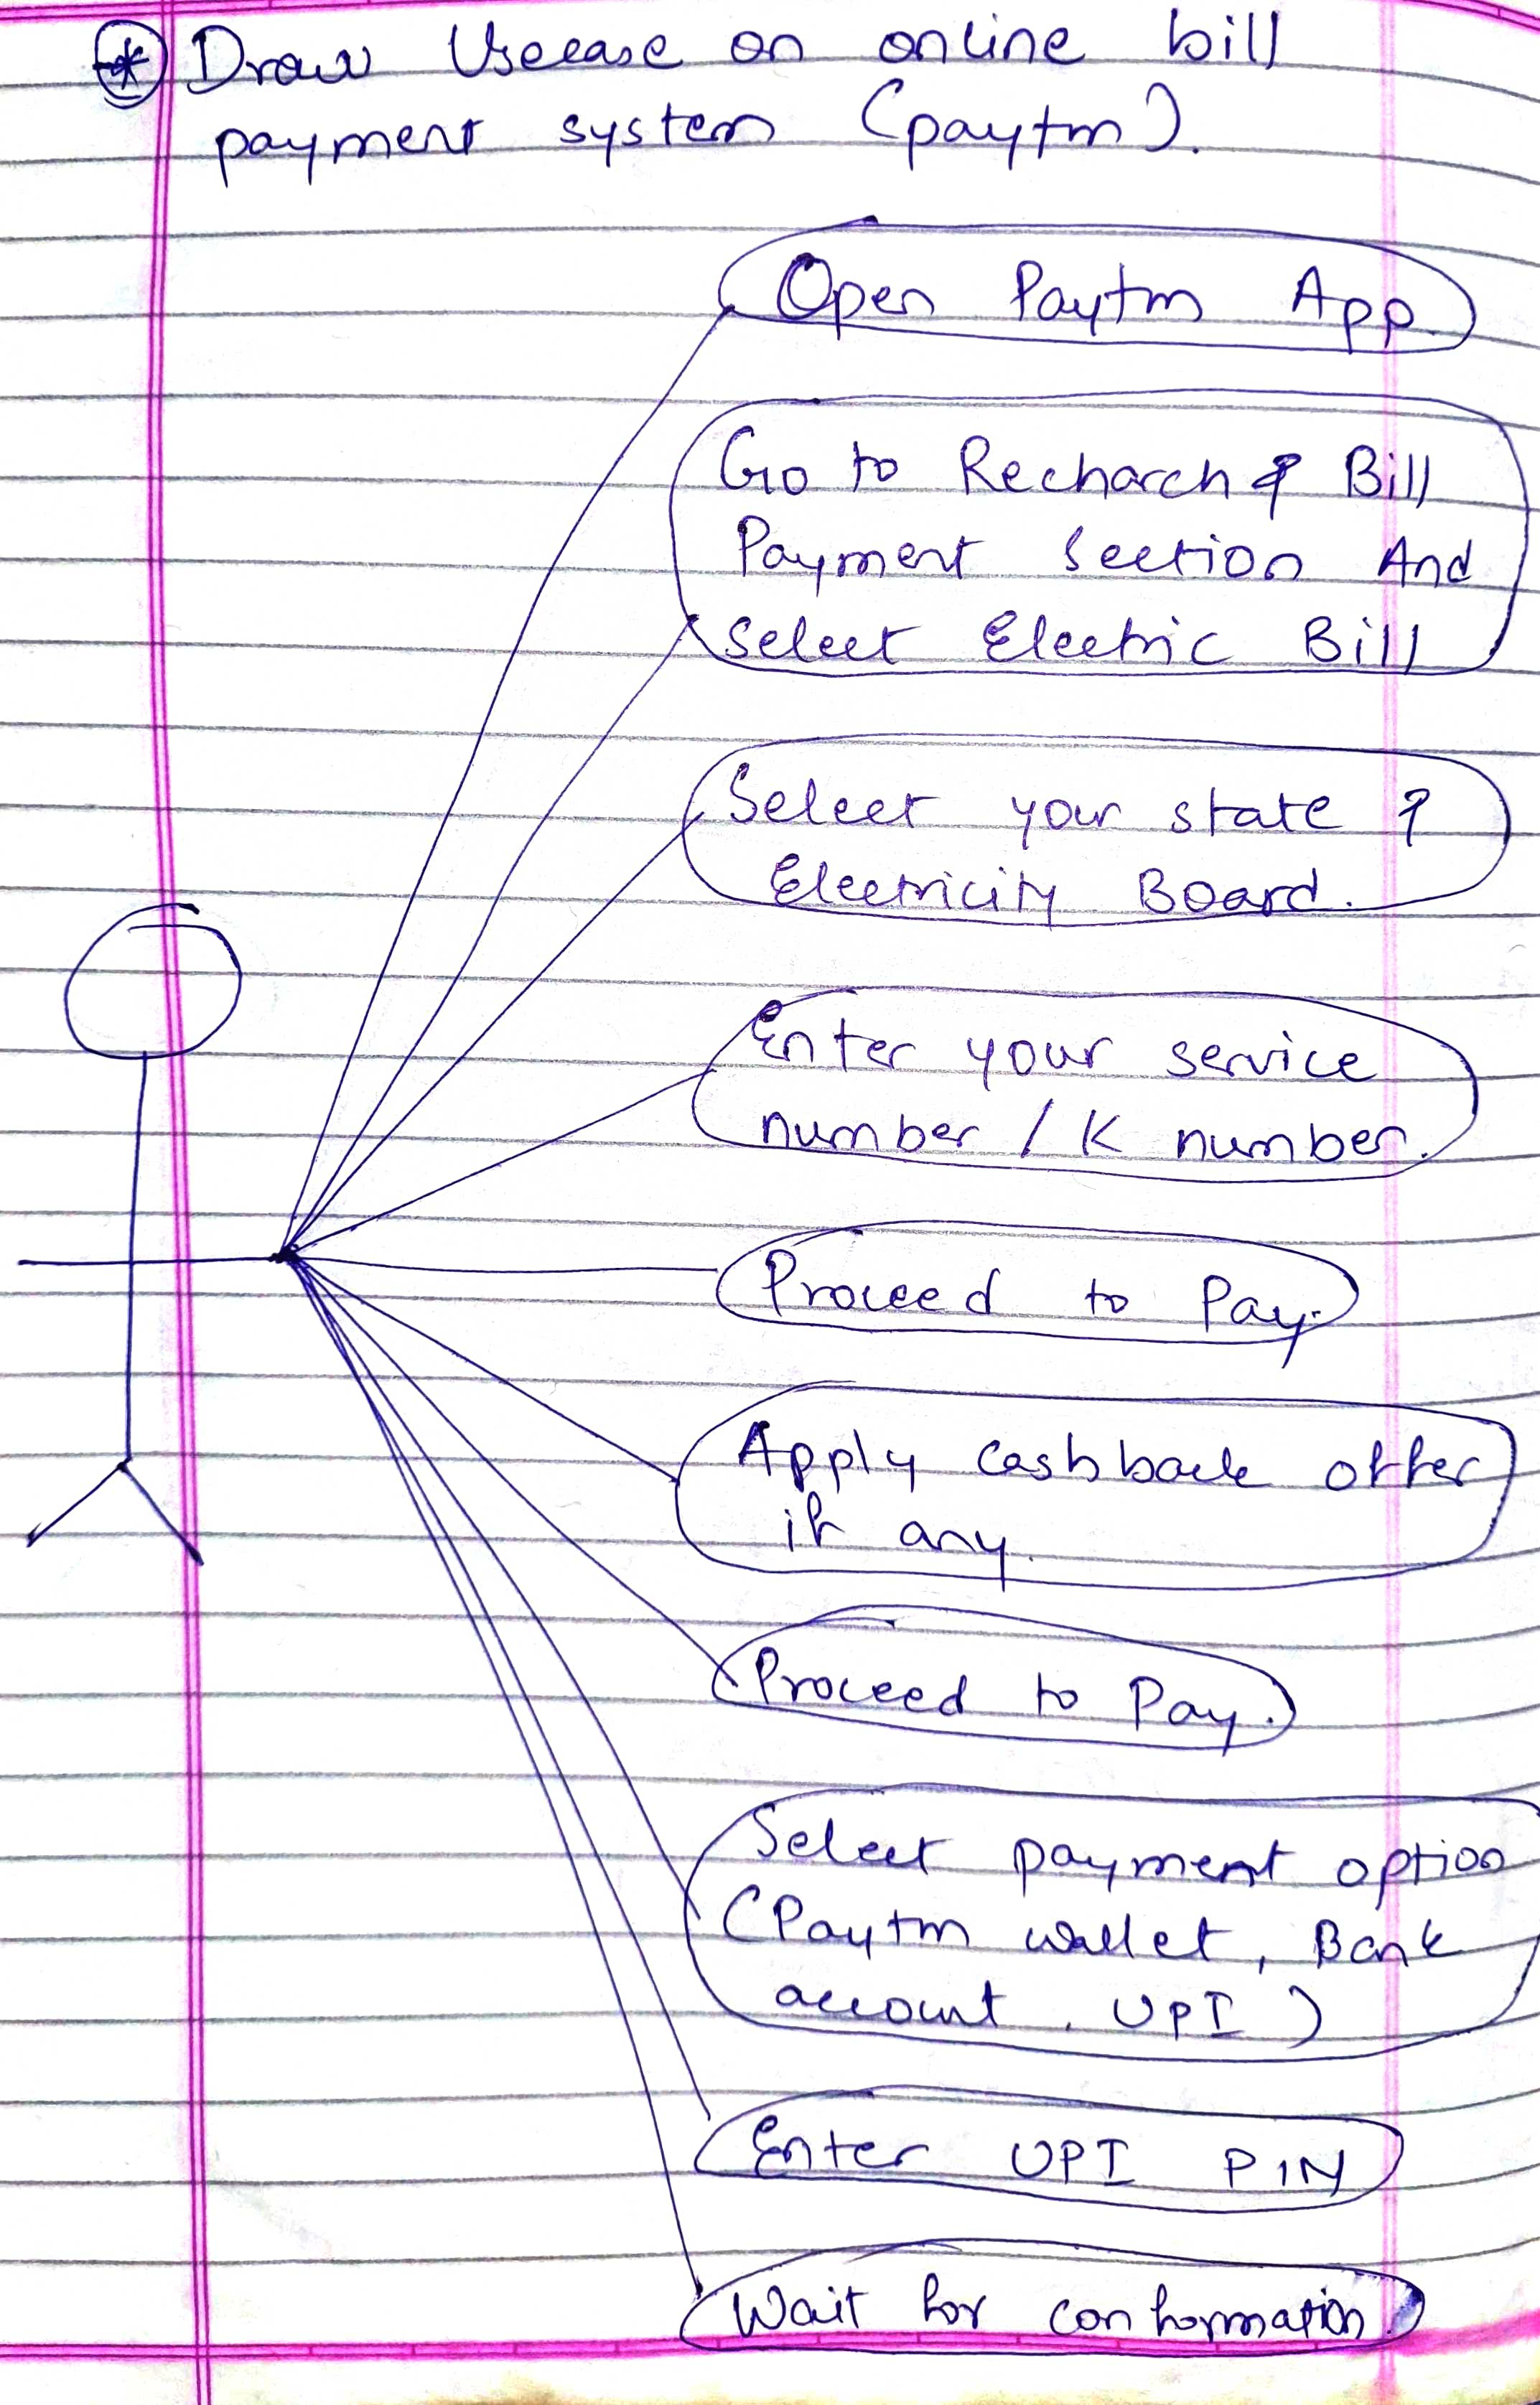 * Draw Usecase on online bill
payment system (paytm).
Open Paytm App.
Go to Recharch & Bill
Payment Section And
Select Electric Bill
Select your state &
Electricity Board.
Enter your service
number / K number.
Proceed to Pay.
Apply cashback offer
if any.
Proceed to Pay.
Select payment option
(Paytm wallet, Bank
account, UPI)
Enter UPI PIN
Wait for conformation